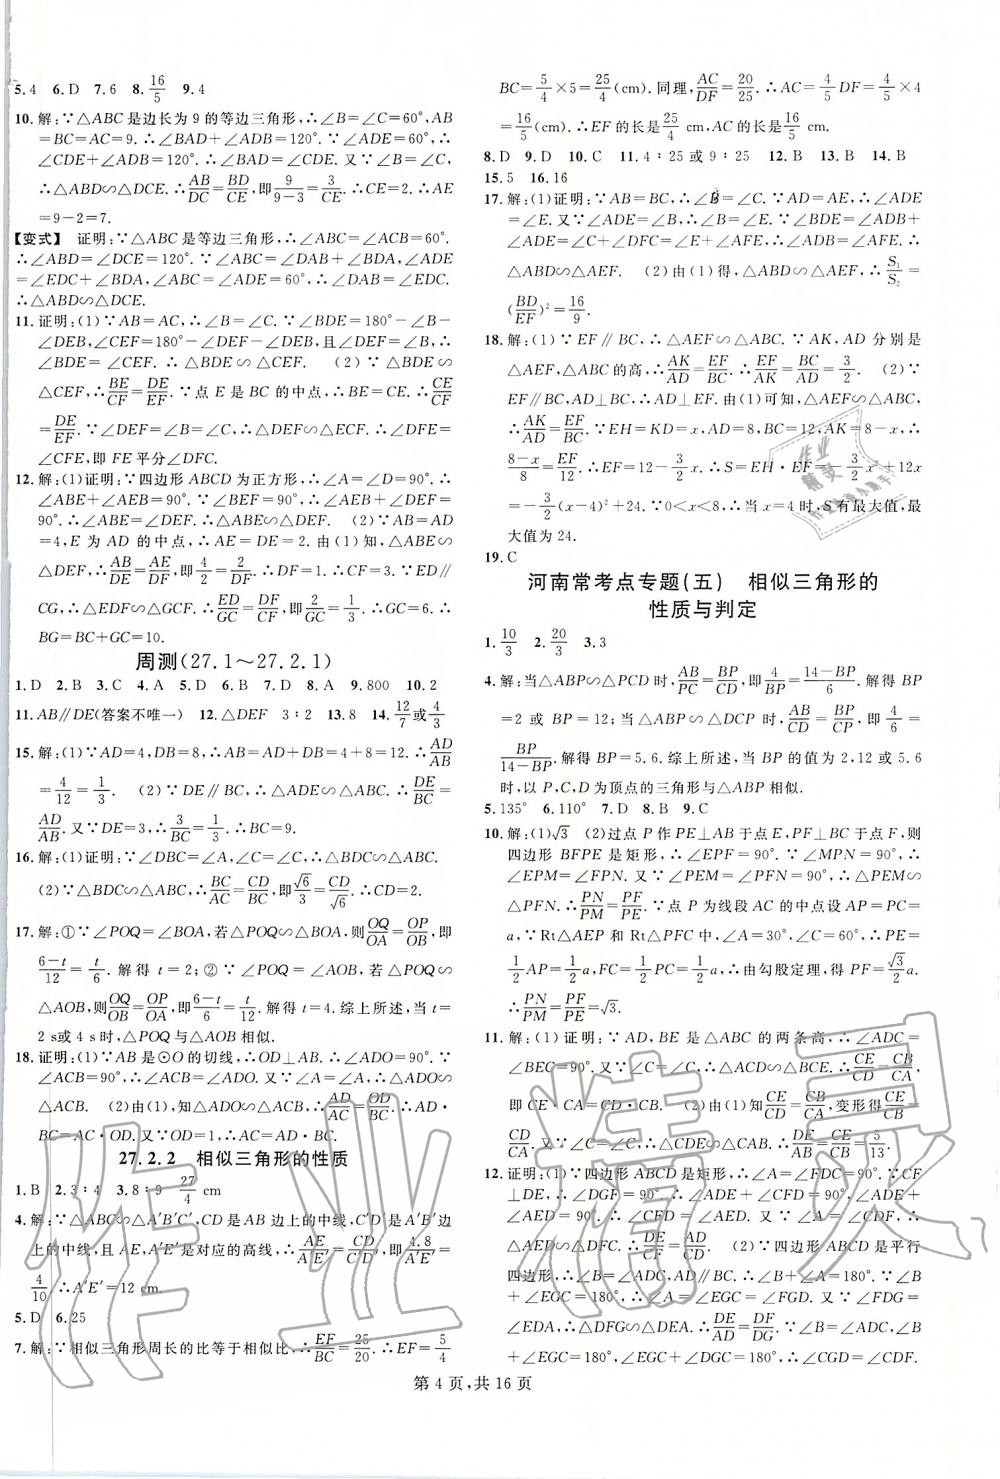 5.4 6.D 7.6 8.16/5 9.4
10.解:∵△ABC是边长为9的等边三角形,∴∠B=∠C=60°,AB
=BC=AC=9.∴∠BAD+∠ADB=120°.∵∠ADE=60°,∴
∠CDE+∠ADB=120°.∴∠BAD=∠CDE.又∵∠B=∠C,
∴△ABD∽△DCE.∴AB/DC=BD/CE,即9/(9-3)=3/CE.∴CE=2.∴AE
=9-2=7.
【变式】 证明:∵△ABC是等边三角形,∴∠ABC=∠ACB=60°.
∴∠ABD=∠DCE=120°.∵∠ABC=∠DAB+∠BDA,∠ADE
=∠EDC+∠BDA,∠ABC=∠ADE=60°,∴∠DAB=∠EDC.
∴△ABD∽△DCE.
11.证明:(1)∵AB=AC,∴∠B=∠C.∵∠BDE=180°-∠B-
∠DEB,∠CEF=180°-∠DEF-∠DEB,且∠DEF=∠B,∴
∠BDE=∠CEF.∴△BDE∽△CEF. (2)∵△BDE∽
△CEF,∴BE/CF=DE/EF.∵点E是BC的中点,∴BE=CE.∴CE/CF=
DE/EF.∵∠DEF=∠B=∠C,∴△DEF∽△ECF.∴∠DFE=
∠CFE,即FE平分∠DFC.
12.解:(1)证明:∵四边形ABCD为正方形,∴∠A=∠D=90°.∴
∠ABE+∠AEB=90°.又∵∠BEF=90°,∴∠AEB+∠DEF=
90°.∴∠ABE=∠DEF.∴△ABE∽△DEF. (2)∵AB=
AD=4,E为AD的中点,∴AE=DE=2.由(1)知,△ABE∽
△DEF,∴AB/DE=AE/DF,即4/2=2/DF.∴DF=1.∴CF=3.∵ED∥
CG,∴△EDF∽△GCF.∴ED/GC=DF/CF,即2/GC=1/3.∴GC=6.∴
BG=BC+GC=10.
周测(27.1~27.2.1)
1.D 2.B 3.C 4.A 5.D 6.B 7.D 8.A 9.800 10.2
11.AB∥DE(答案不唯一) 12.△DEF 3:2 13.8 14.12/7或4/3
15.解:(1)∵AD=4,DB=8,∴AB=AD+DB=4+8=12.∴AD/AB
=4/12=1/3. (2)∵DE∥BC,∴△ADE∽△ABC.∴DE/BC=
AD/AB.又∵DE=3,∴3/BC=1/3.∴BC=9.
16.解:(1)证明:∵∠DBC=∠A,∠C=∠C,∴△BDC∽△ABC.
(2)∵△BDC∽△ABC,∴BC/AC=CD/BC,即√6/3=CD/√6.∴CD=2.
17.解:①∵∠POQ=∠BOA,若△POQ∽△BOA,则OQ/OA=OP/OB,即
(6-t)/12=t/6.解得t=2;②∵∠POQ=∠AOB,若△POQ∽
△AOB,则OQ/OB=OP/OA,即(6-t)/6=t/12.解得t=4.综上所述,当t=
2 s或4 s时,△POQ与△AOB相似.
18.证明:(1)∵AB是⊙O的切线,∴OD⊥AB.∴∠ADO=90°.∵
∠ACB=90°,∴∠ACB=∠ADO.又∵∠A=∠A,∴△ADO∽
△ACB. (2)由(1),知△ADO∽△ACB.∴AD/AC=OD/BC.∴AD·
BC=AC·OD.又∵OD=1,∴AC=AD·BC.
27.2.2 相似三角形的性质
1.B 2.3:4 3.8:9 27/4 cm
4.解:∵△ABC∽△A′B′C′,CD是AB边上的中线,C′D′是A′B′边
上的中线,且AE,A′E′是对应的高线,∴AE/A′E′=CD/C′D′,即4.8/A′E′=
4/10.∴A′E′=12 cm.
5.D 6.25
7.解:∵相似三角形周长的比等于相似比,∴EF/BC=25/20.∴EF=5/4
BC=5/4×5=25/4(cm).同理,AC/DF=20/25.∴AC=4/5DF=4/5×4
=16/5(cm).∴EF的长是25/4 cm,AC的长是16/5 cm.
8.D 9.D 10.C 11.4:25或9:25 12.B 13.B 14.B
15.5 16.16
17.解:(1)证明:∵AB=BC,∴∠B=∠C.∵AD=AE,∴∠ADE
=∠E.又∵∠ADE=∠B,∴∠E=∠B=∠C.∵∠BDF=∠ADE
+∠ADB=∠C+∠DFC,∴∠ADB=∠DFC=∠AFE.∴
△ABD∽△AEF. (2)由(1)得,△ABD∽△AEF,∴S₁/S₂=
(BD/EF)²=16/9.
18.解:(1)∵EF∥BC,∴△AEF∽△ABC.又∵AK,AD分别是
△AEF,△ABC的高,∴AK/AD=EF/BC.∴EF/AK=BC/AD=3/2. (2)∵
EF∥BC,AD⊥BC,∴AD⊥EF.由(1)可知,△AEF∽△ABC,
∴AK/AD=EF/BC.∵EH=KD=x,AD=8,BC=12,AK=8-x,∴
(8-x)/8=EF/12.∴EF=12-3/2x.∴S=EH·EF=-3/2x²+12x
=-3/2(x-4)²+24.∵0<x<8,∴当x=4时,S有最大值,最
大值为24.
19.C
河南常考点专题(五) 相似三角形的
性质与判定
1.10/3 2.20/3 3.3
4.解:当△ABP∽△PCD时,AB/PC=BP/CD,即4/(14-BP)=BP/6.解得BP
=2或BP=12;当△ABP∽△DCP时,AB/CD=BP/CP,即4/6=
BP/(14-BP).解得BP=5.6.综上所述,当BP的值为2,12或5.6
时,以P,C,D为顶点的三角形与△ABP相似.
5.135° 6.110° 7.D 8.B 9.C
10.解:(1)√3 (2)过点P作PE⊥AB于点E,PF⊥BC于点F,则
四边形BFPE是矩形,∴∠EPF=90°.∵∠MPN=90°,∴
∠EPM=∠FPN.又∵∠PEM=∠PFN=90°,∴△PEM∽
△PFN.∴PN/PM=PF/PE.∵点P为线段AC的中点设AP=PC=
a,∵Rt△AEP和Rt△PFC中,∠A=30°,∠C=60°,∴PE=
1/2AP=1/2a,FC=1/2PC=1/2a.∴由勾股定理,得PF=√3/2a.
∴PN/PM=PF/PE=√3.
11.解:(1)证明:∵AD,BE是△ABC的两条高,∴∠ADC=
∠BEC=90°.又∵∠C=∠C,∴△ACD∽△BCE.∴CE/CD=CB/CA,
即CE·CA=CD·CB. (2)由(1)知CE/CD=CB/CA,变形得CE/CB=
CD/CA.又∵∠C=∠C,∴△CDE∽△CAB.∴DE/AB=CE/CB=5/13.
12.证明:(1)∵四边形ABCD是矩形,∴∠A=∠FDC=90°.∵
CF⊥DE,∴∠DGF=90°.∴∠ADE+∠CFD=90°,∠ADE+
∠AED=90°.∴∠CFD=∠AED.又∵∠A=∠CDF,∴
△AED∽△DFC.∴DE/CF=AD/CD. (2)∵四边形ABCD是平行
四边形,∴∠B=∠ADC,AD∥BC.∴∠B+∠A=180°.∵∠B
+∠EGC=180°,∴∠A=∠EGC=∠FGD.∵∠FDG=
∠EDA,∴△DFG∽△DEA.∴AD/DE=DG/DF.∵∠B=∠ADC,∠B+
∠EGC=180°,∠EGC+∠DGC=180°,∴∠CGD=∠CDF.
第4页,共16页
作业精灵